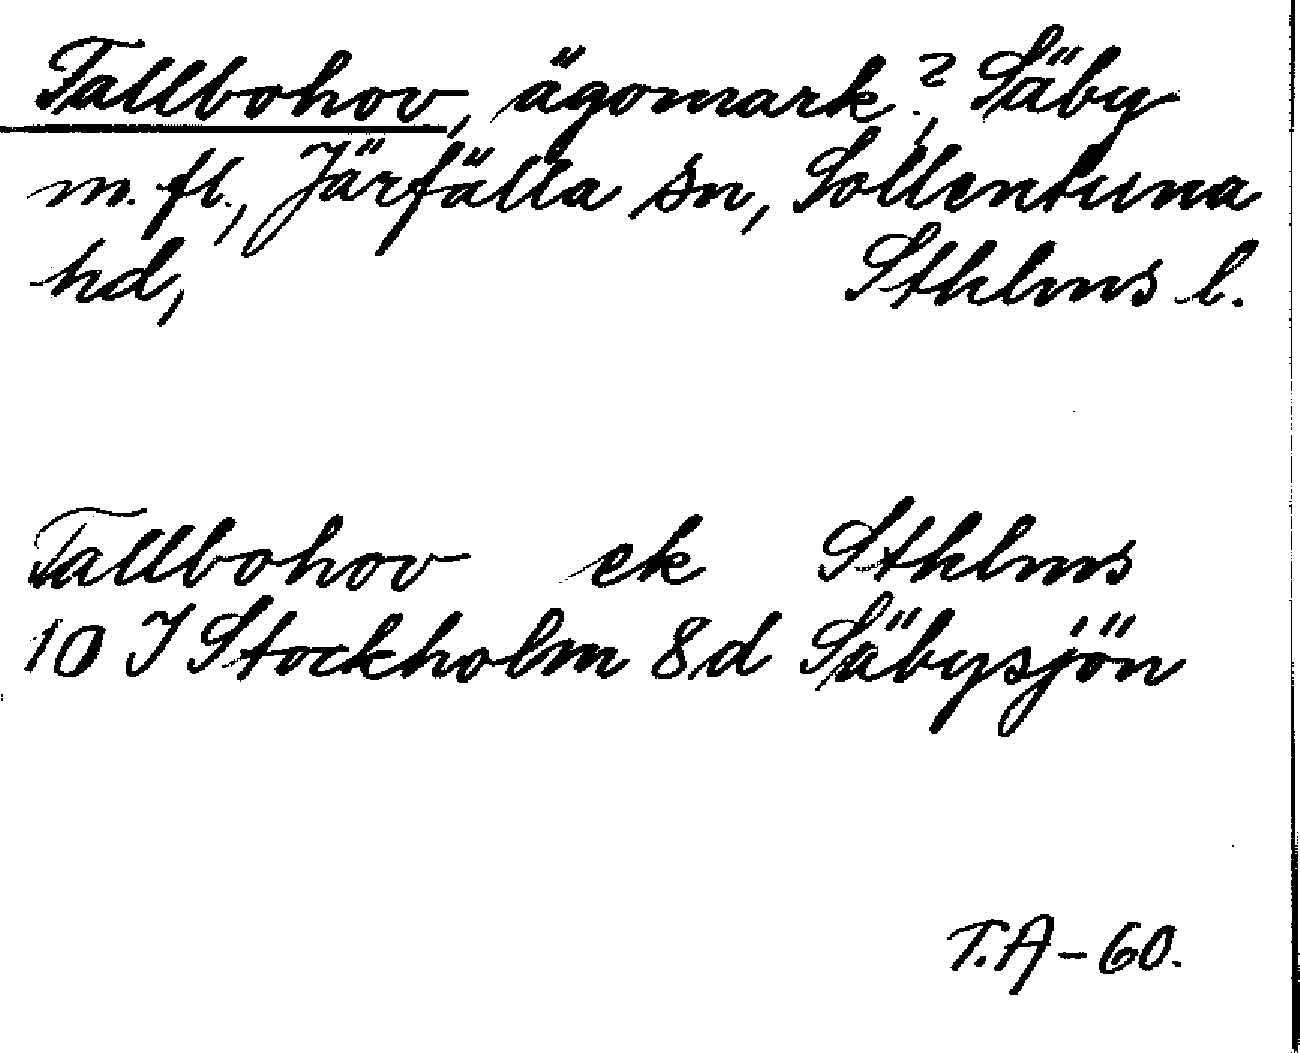 Tallbohov, ägomark?, Säby
m. fl., Järfälla sn, Sollentuna
hd, Sthlms l.
Tallbohov ek Sthlms
10 I Stockholm 8d Säbysjön
T.A-60.